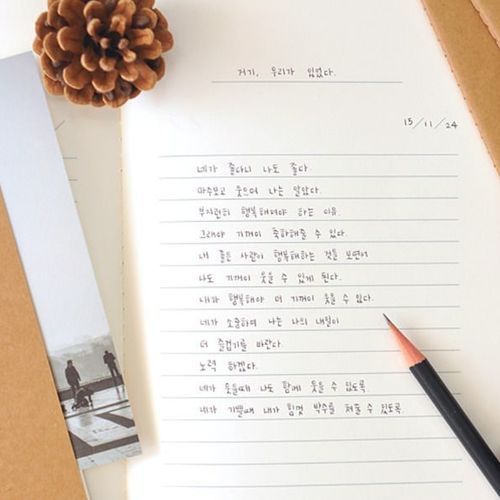 거기, 우리가 있었다.
15/11/24
네가 좋다니 나도 좋다.
마주보고 웃으며 나는 알았다.
부지런히 행복해져야 하는 이유.
그래야 기꺼이 축하해줄 수 있다.
내 좋은 사람이 행복해하는 것을 보면서
나도 기꺼이 웃을 수 있게 된다.
내가 행복해야 더 기꺼이 웃을 수 있다.
네가 소중하여 나는 나의 내일이
더 즐겁기를 바란다.
노력 하겠다.
네가 웃을때 나도 함께 웃을 수 있도록
네가 기쁠때 내가 힘껏 박수를 쳐줄 수 있도록